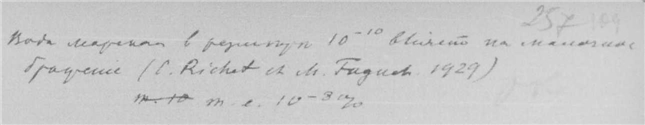 257
Вода морская в разжиж. 10⁻¹⁰ влияет на молочное
брожение (C. Richet et M. Faguet. 1929)
т. 10 т. е. 10⁻⁸ %